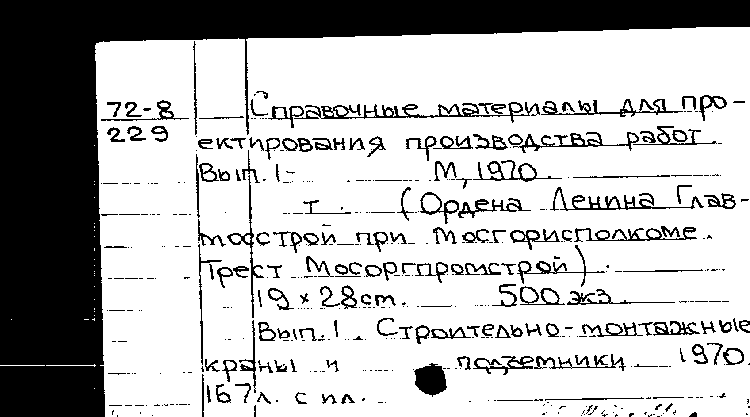 72-8 Справочные материалы для про-
229 ектирования производства работ.
Вып. 1- М, 1970.
т. (Ордена Ленина Глав-
мосстрой при Мосгорисполкоме.
Трест Мосоргпромстрой).
19 × 28 см. 500 экз.
Вып. 1. Строительно-монтажные
краны и подъемники. 1970.
167 л. с ил.